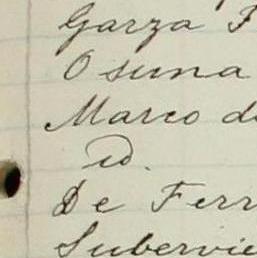 Garza F
Osuna
Marco de
id.
De Ferr
Subervie